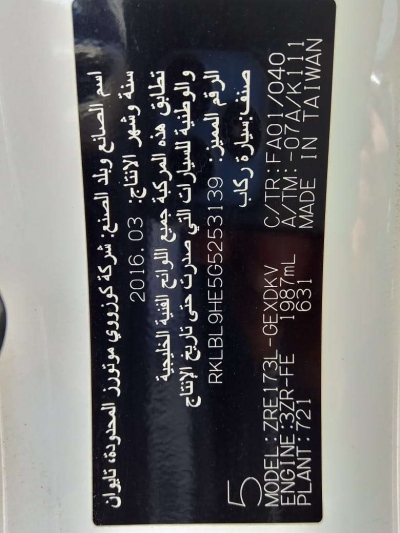 اسم الصانع وبلد الصنع: شركة كوزروي موتورز المحدودة، تايوان
سنة وشهر الإنتاج: 2016.03
تطابق هذه المركبة جميع اللوائح الفنية الخليجية
والوطنية للسيارات التي صدرت حتى تاريخ الإنتاج
الرقم المميز: RKLBL9HE5G5253139
صنف: سيارة ركاب
5
MODEL:ZRE173L-GEXDKV C/TR:FA01/040
ENGINE:3ZR-FE 1987mL A/TM:-07A/K111
PLANT:721 631 MADE IN TAIWAN